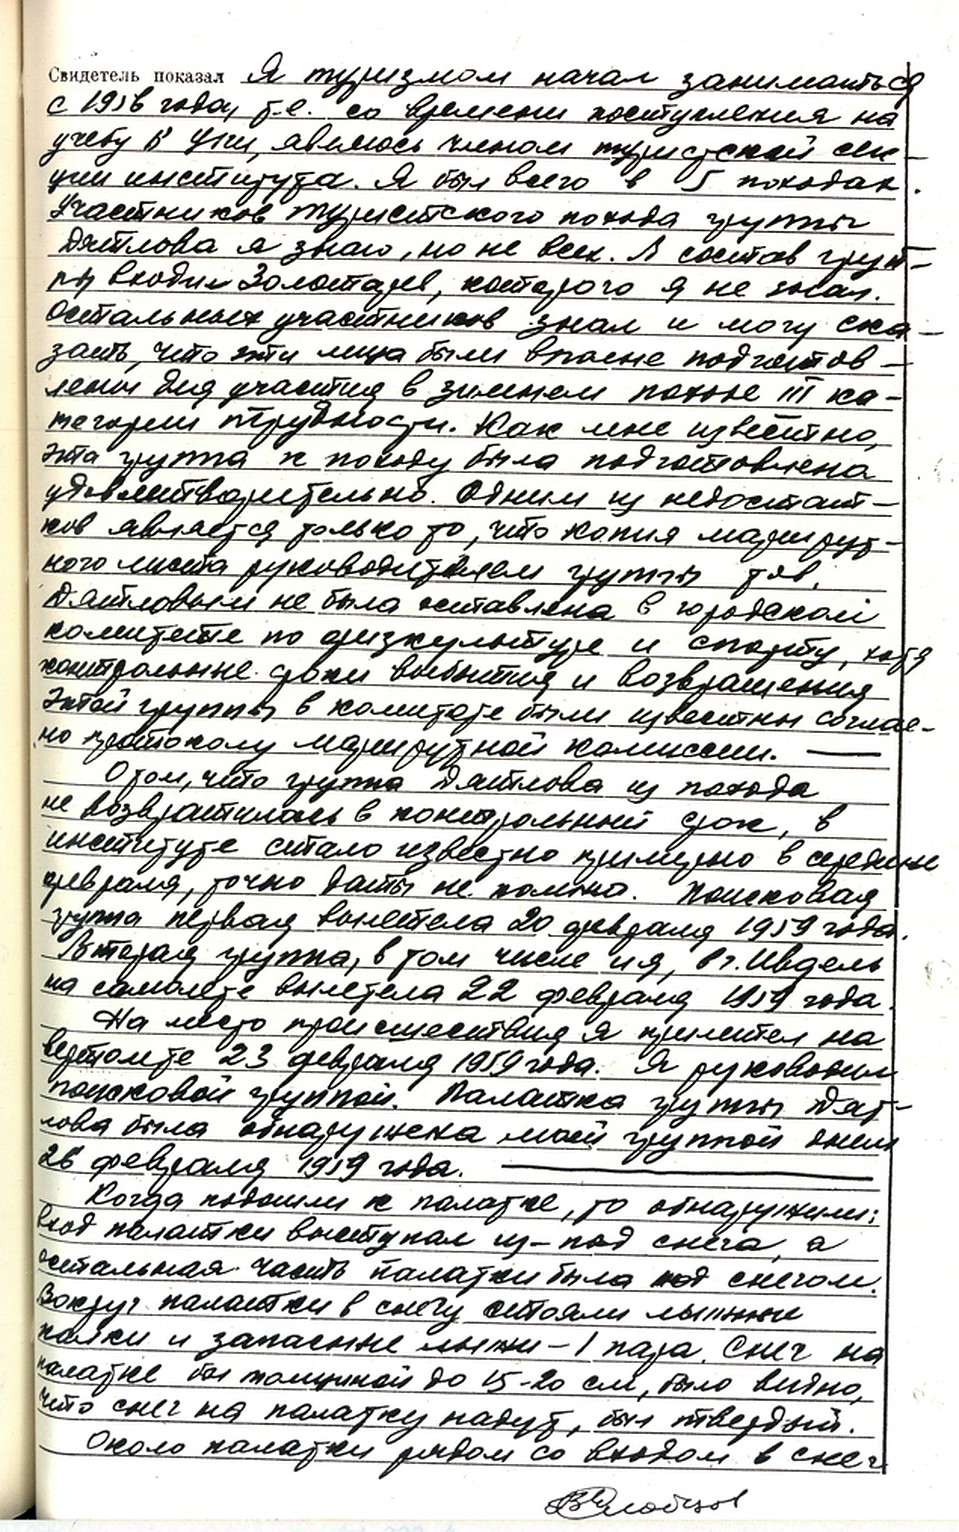 Свидетель показал Я туризмом начал заниматься
с 1956 года, т.е. со времени поступления на
учебу в УПИ, являюсь членом туристской сек-
ции института. Я был всего в 5 походах.
Участников туристского похода группы
Дятлова я знаю, но не всех. В состав груп-
пы входил Золотарев, которого я не знал.
Остальных участников знал и могу ска-
зать, что эти лица были вполне подготов-
лены для участия в зимнем походе III ка-
тегории трудности. Как мне известно,
эта группа к походу была подготовлена
удовлетворительно. Одним из недостат-
ков является только то, что копия маршрут-
ного листа руководителем группы тов.
Дятловым не была оставлена в городском
комитете по физкультуре и спорту, хотя
контрольные сроки выбытия и возвращения
этой группы в комитете были известны соглас-
но протоколу маршрутной комиссии.
О том, что группа Дятлова из похода
не возвратилась в контрольный срок, в
институте стало известно примерно в середине
февраля, точно даты не помню. Поисковая
группа первая вылетела 20 февраля 1959 года.
Вторая группа, в том числе и я, в г. Ивдель
на самолете вылетела 22 февраля 1959 года.
На место происшествия я прилетел на
вертолете 23 февраля 1959 года. Я руководил
поисковой группой. Палатка группы Дят-
лова была обнаружена моей группой днем
26 февраля 1959 года.
Когда подошли к палатке, то обнаружили:
вход палатки выступал из-под снега, а
остальная часть палатки была под снегом.
Вокруг палатки в снегу стояли лыжные
палки и запасные лыжи - 1 пара. Снег на
палатке был толщиной до 15-20 см, было видно,
что снег на палатку надут, был твердый.
Около палатки рядом со входом в снег
ВСлобцов